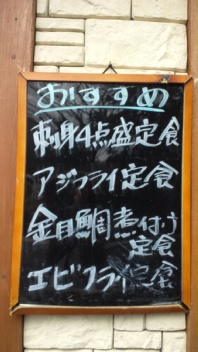 おすすめ
刺身4点盛定食
アジフライ定食
金目鯛煮付け
定食
エビフライ定食